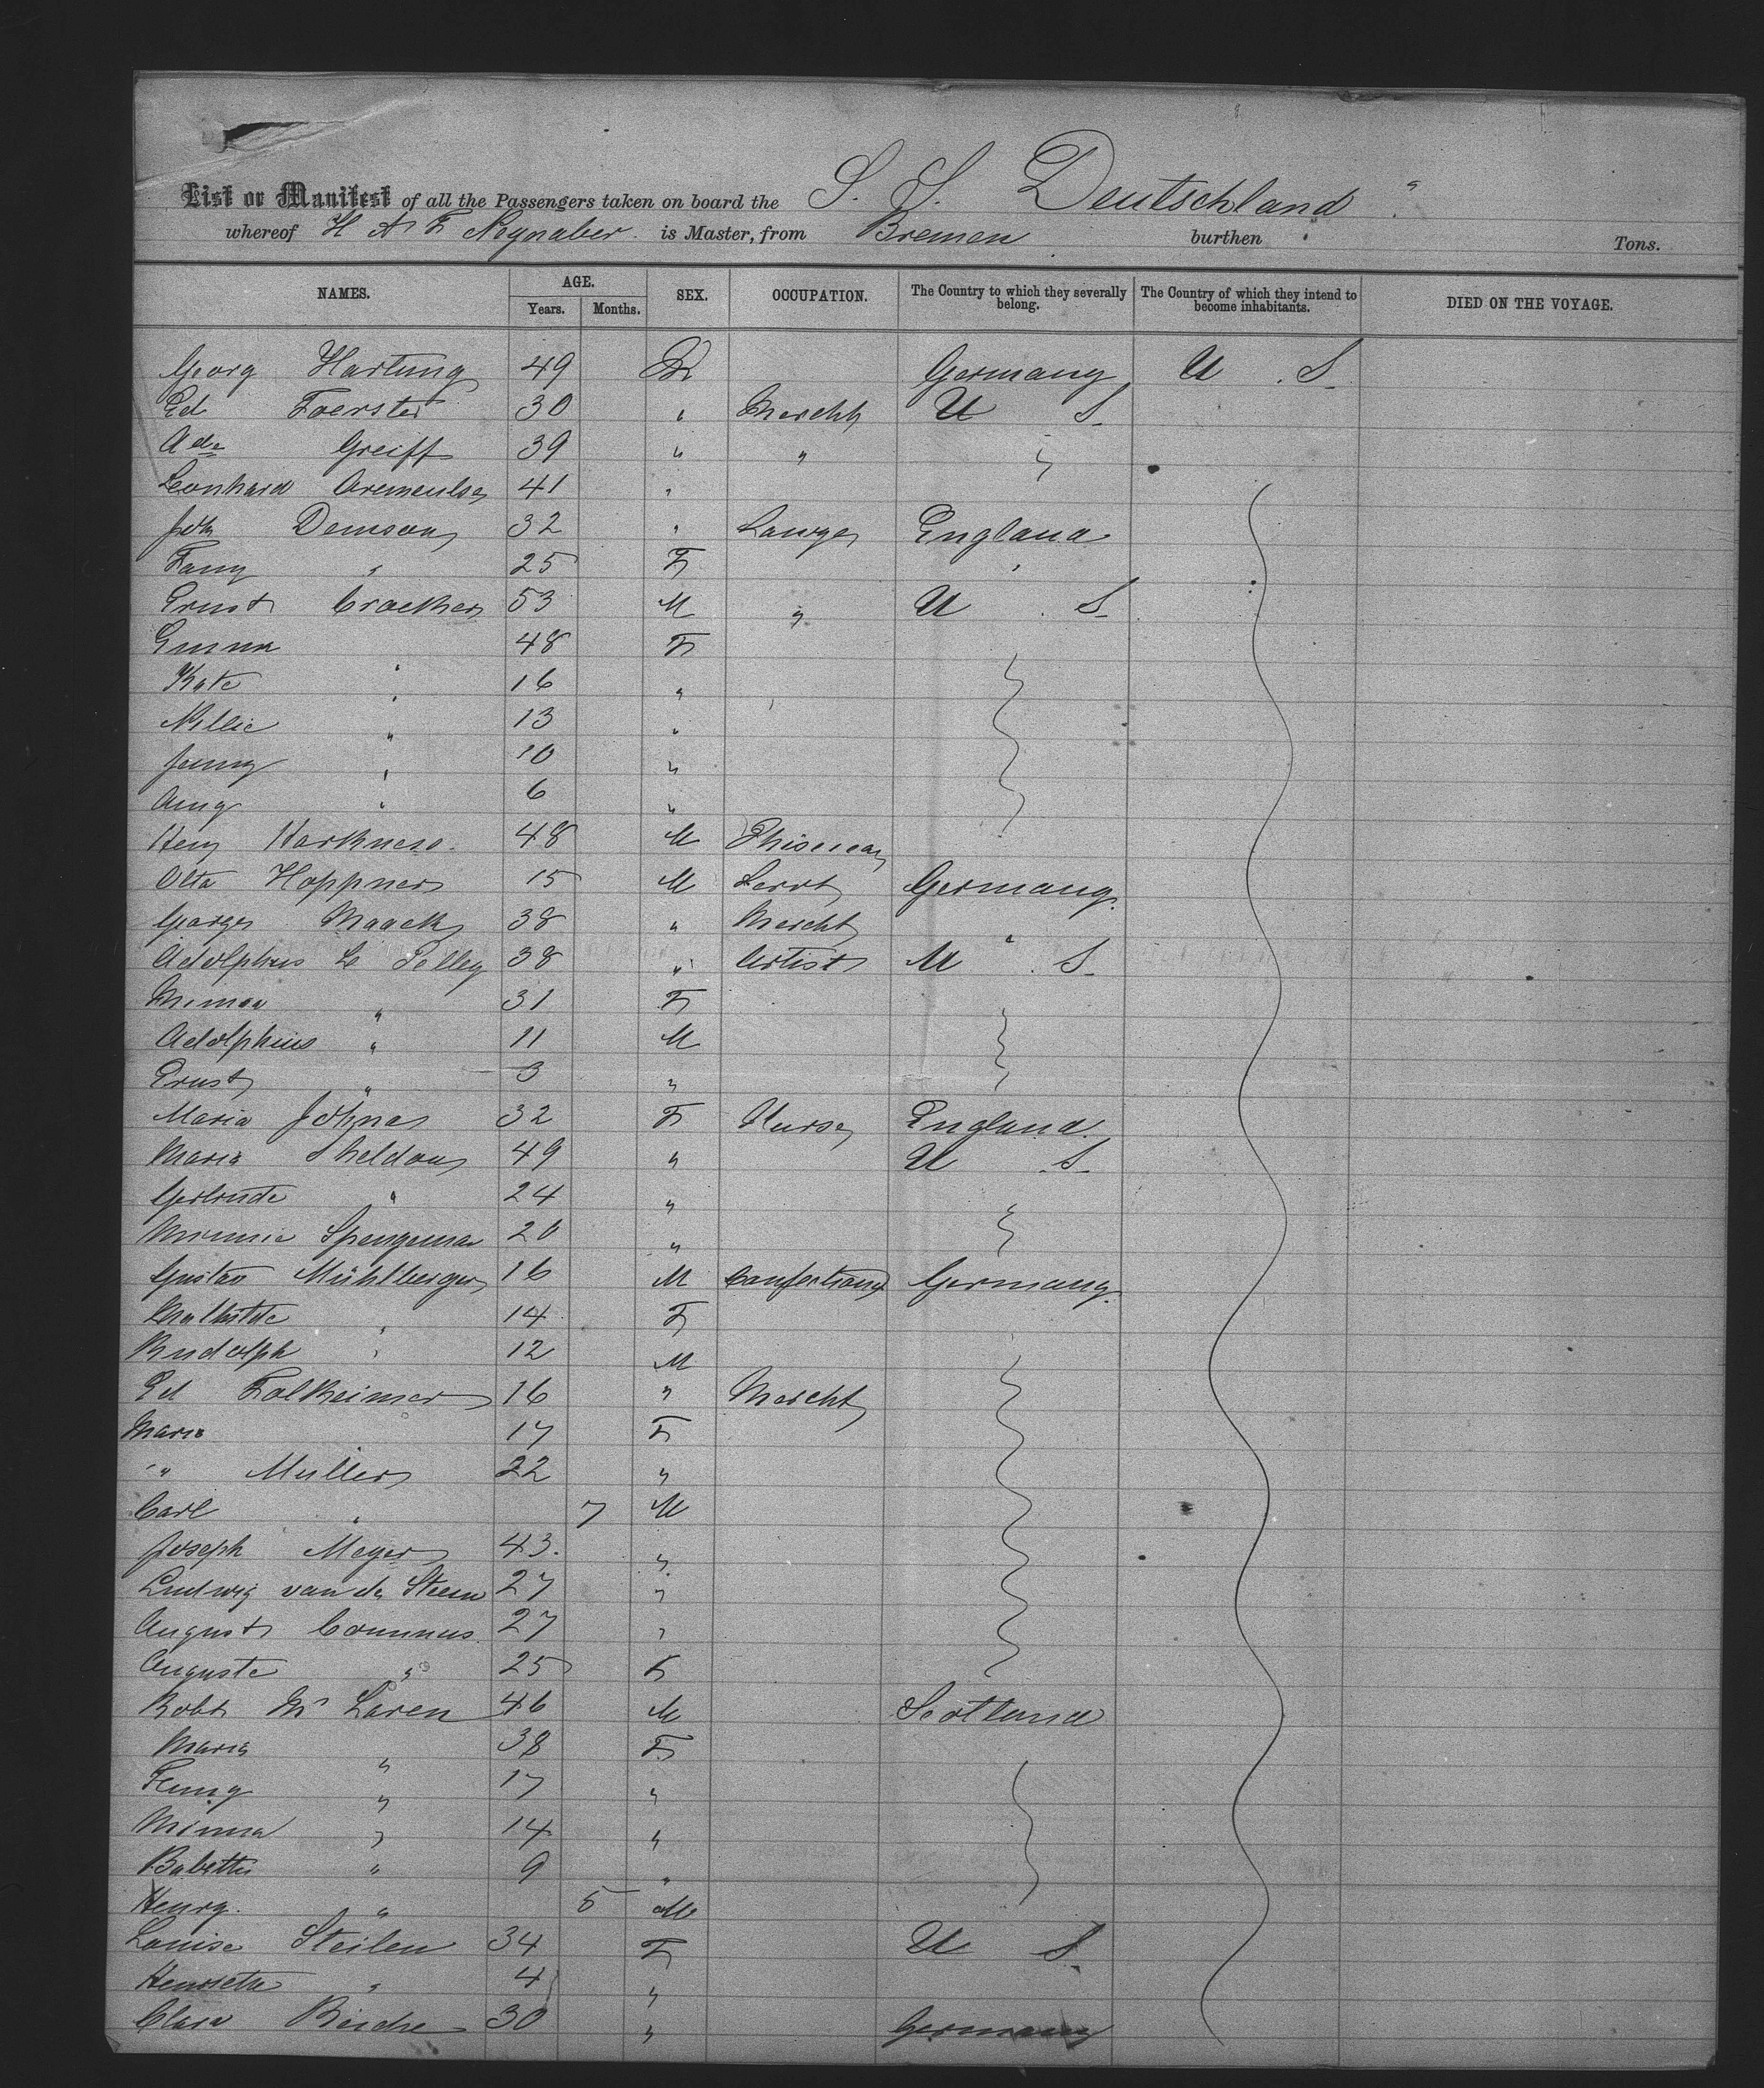 List or Manifest of all the Passengers taken on board the S. S. Deutschland "
whereof H A F Neynaber is Master, from Bremen burthen Tons.
NAMES. AGE. Years. Months. SEX. OCCUPATION. The Country to which they severally belong. The Country of which they intend to become inhabitants. DIED ON THE VOYAGE.
Georg Hartung 49 M Germany U . S.
Ed Foerster 30 " Mercht U S.
Ads Greiff 39 " " "
Leonhard 41 "
Joh Demson 32 " Lawyer England
Fany " 25 F "
Ernst Croacker 53 M " U . S.
Emma 48 F
Kate " 16 "
Nellie " 13 "
Jenny " 10 "
Amy " 6 "
Heny Harkness. 48 M Phisician
Otto Hoppner 15 M Servt Germany.
George Maack 38 " Mercht "
Adolphus Le Pelley 38 " Artist U . S.
Minna " 31 F
Adolphus " 11 M
Ernst " 3 "
Maria Johnes 32 F Nurse England.
Maria Sheldon 49 " U . S.
Gertrude " 24 "
Minnie Spengeman 20 "
Gustav Mühlberger 16 M Confectioner Germany.
Mathilde " 14 F
Rudolph " 12 M
Ed Falkheimer 16 " Mercht
Maria 17 F
" Muller 22 "
Carl " 7 M
Joseph Meyer 43. "
Ludwig van de Steen 27 "
August Counnus. 27 "
Auguste " 25 F
Robt Mc Laren 46 M Scotland
Maria " 38 F
Fanny " 17 "
Minna " 14 "
Babette " 9 "
Henry. " 5 M
Louise Steilen 34 F U S.
Henriette " 4 "
Clara Reiche 30 " Germany